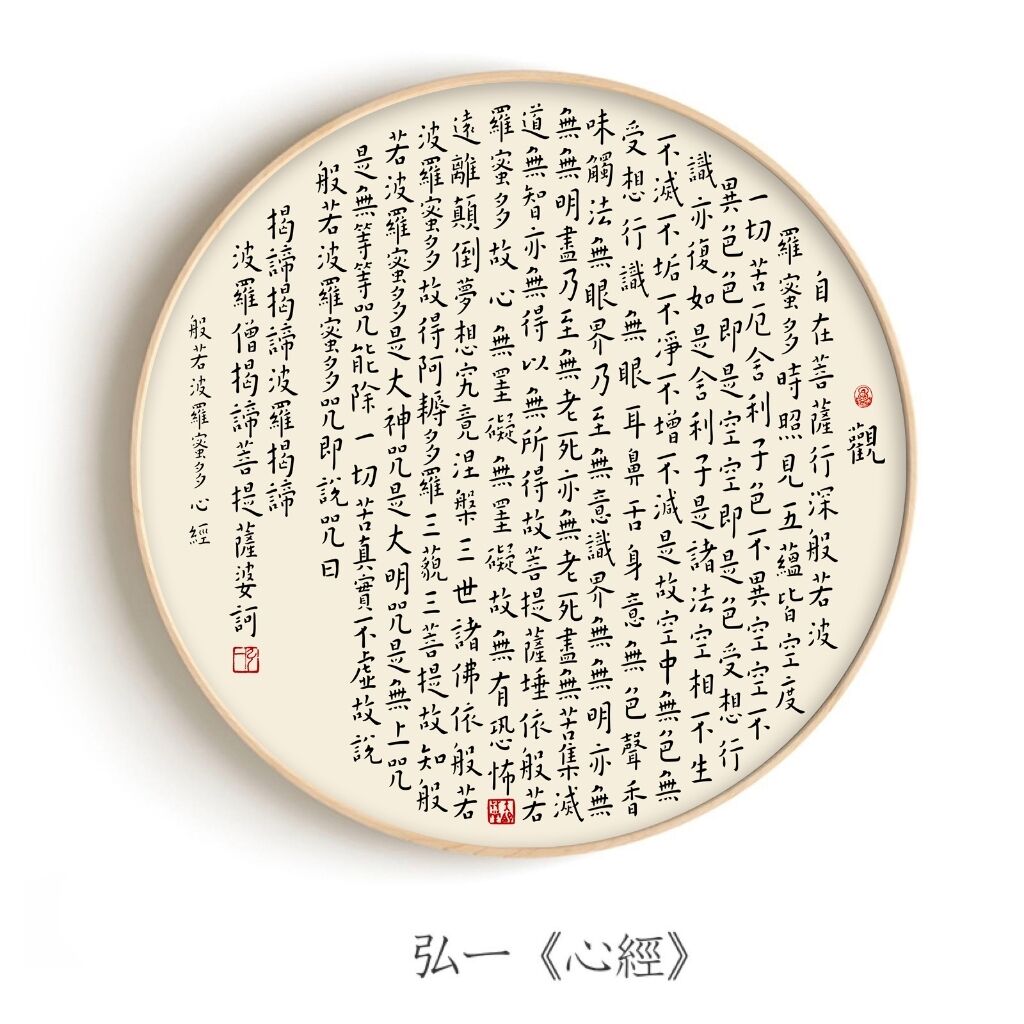 觀
自在菩薩行深般若波
羅蜜多時照見五蘊皆空度
一切苦厄舍利子色不異空空不
異色色即是空空即是色受想行
識亦復如是舍利子是諸法空相不生
不滅不垢不淨不增不減是故空中無色無
受想行識無眼耳鼻舌身意無色聲香
味觸法無眼界乃至無意識界無無明亦無
無無明盡乃至無老死亦無老死盡無苦集滅
道無智亦無得以無所得故菩提薩埵依般若
羅蜜多故心無罣礙無罣礙故無有恐怖
遠離顛倒夢想究竟涅槃三世諸佛依般若
波羅蜜多故得阿耨多羅三藐三菩提故知般
若波羅蜜多是大神咒是大明咒是無上咒
是無等等咒能除一切苦真實不虛故說
般若波羅蜜多咒即說咒曰
揭諦揭諦波羅揭諦
波羅僧揭諦菩提薩婆訶
般若波羅蜜多心經
弘一《心經》